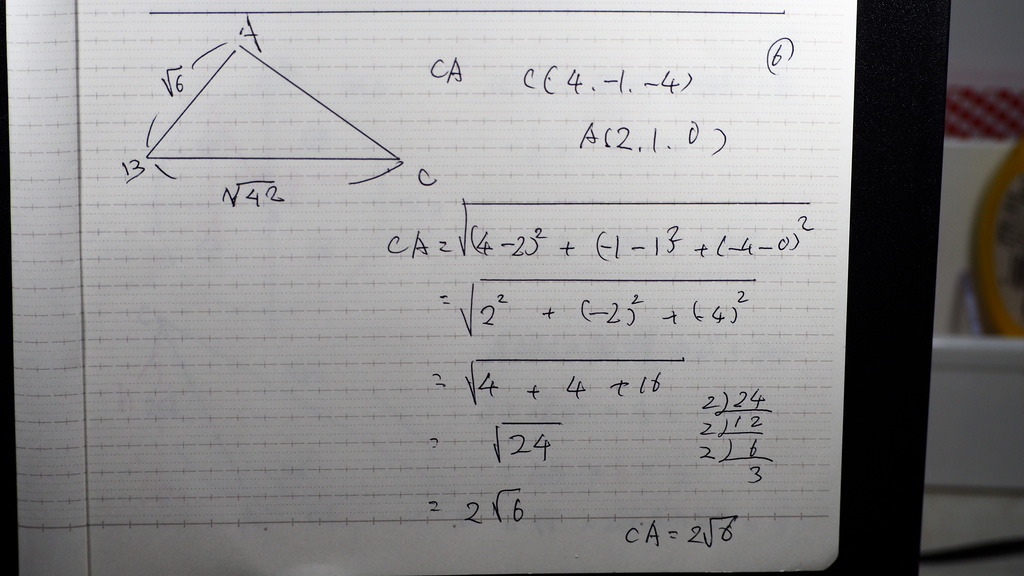 A
√6
B
√42
C
CA C(4.-1.-4) ⑥
A(2.1.0)
CA=√(4-2)² + (-1-1)² +(-4-0)²
=√2² + (-2)² + (-4)²
= √4 + 4 +16
= √24
= 2√6
2)24
2)12
2)6
3
CA=2√6